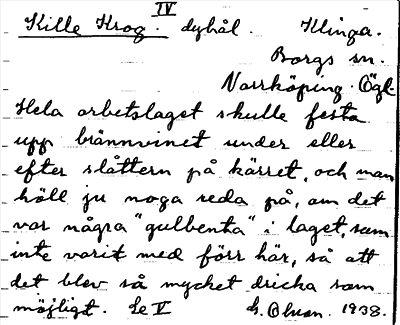 IV
Kille Krog. dyhål. Klinga.
Borgs sn.
Norrköping. Ögl.
Hela arbetslaget skulle festa
upp brännvinet under eller
efter slåttern på kärret, och man
höll ju noga reda på, om det
var några "gulbenta" i laget, som
inte varit med förr här, så att
det blev så mycket dricka som
möjligt. Se V G. Olsson. 1938.